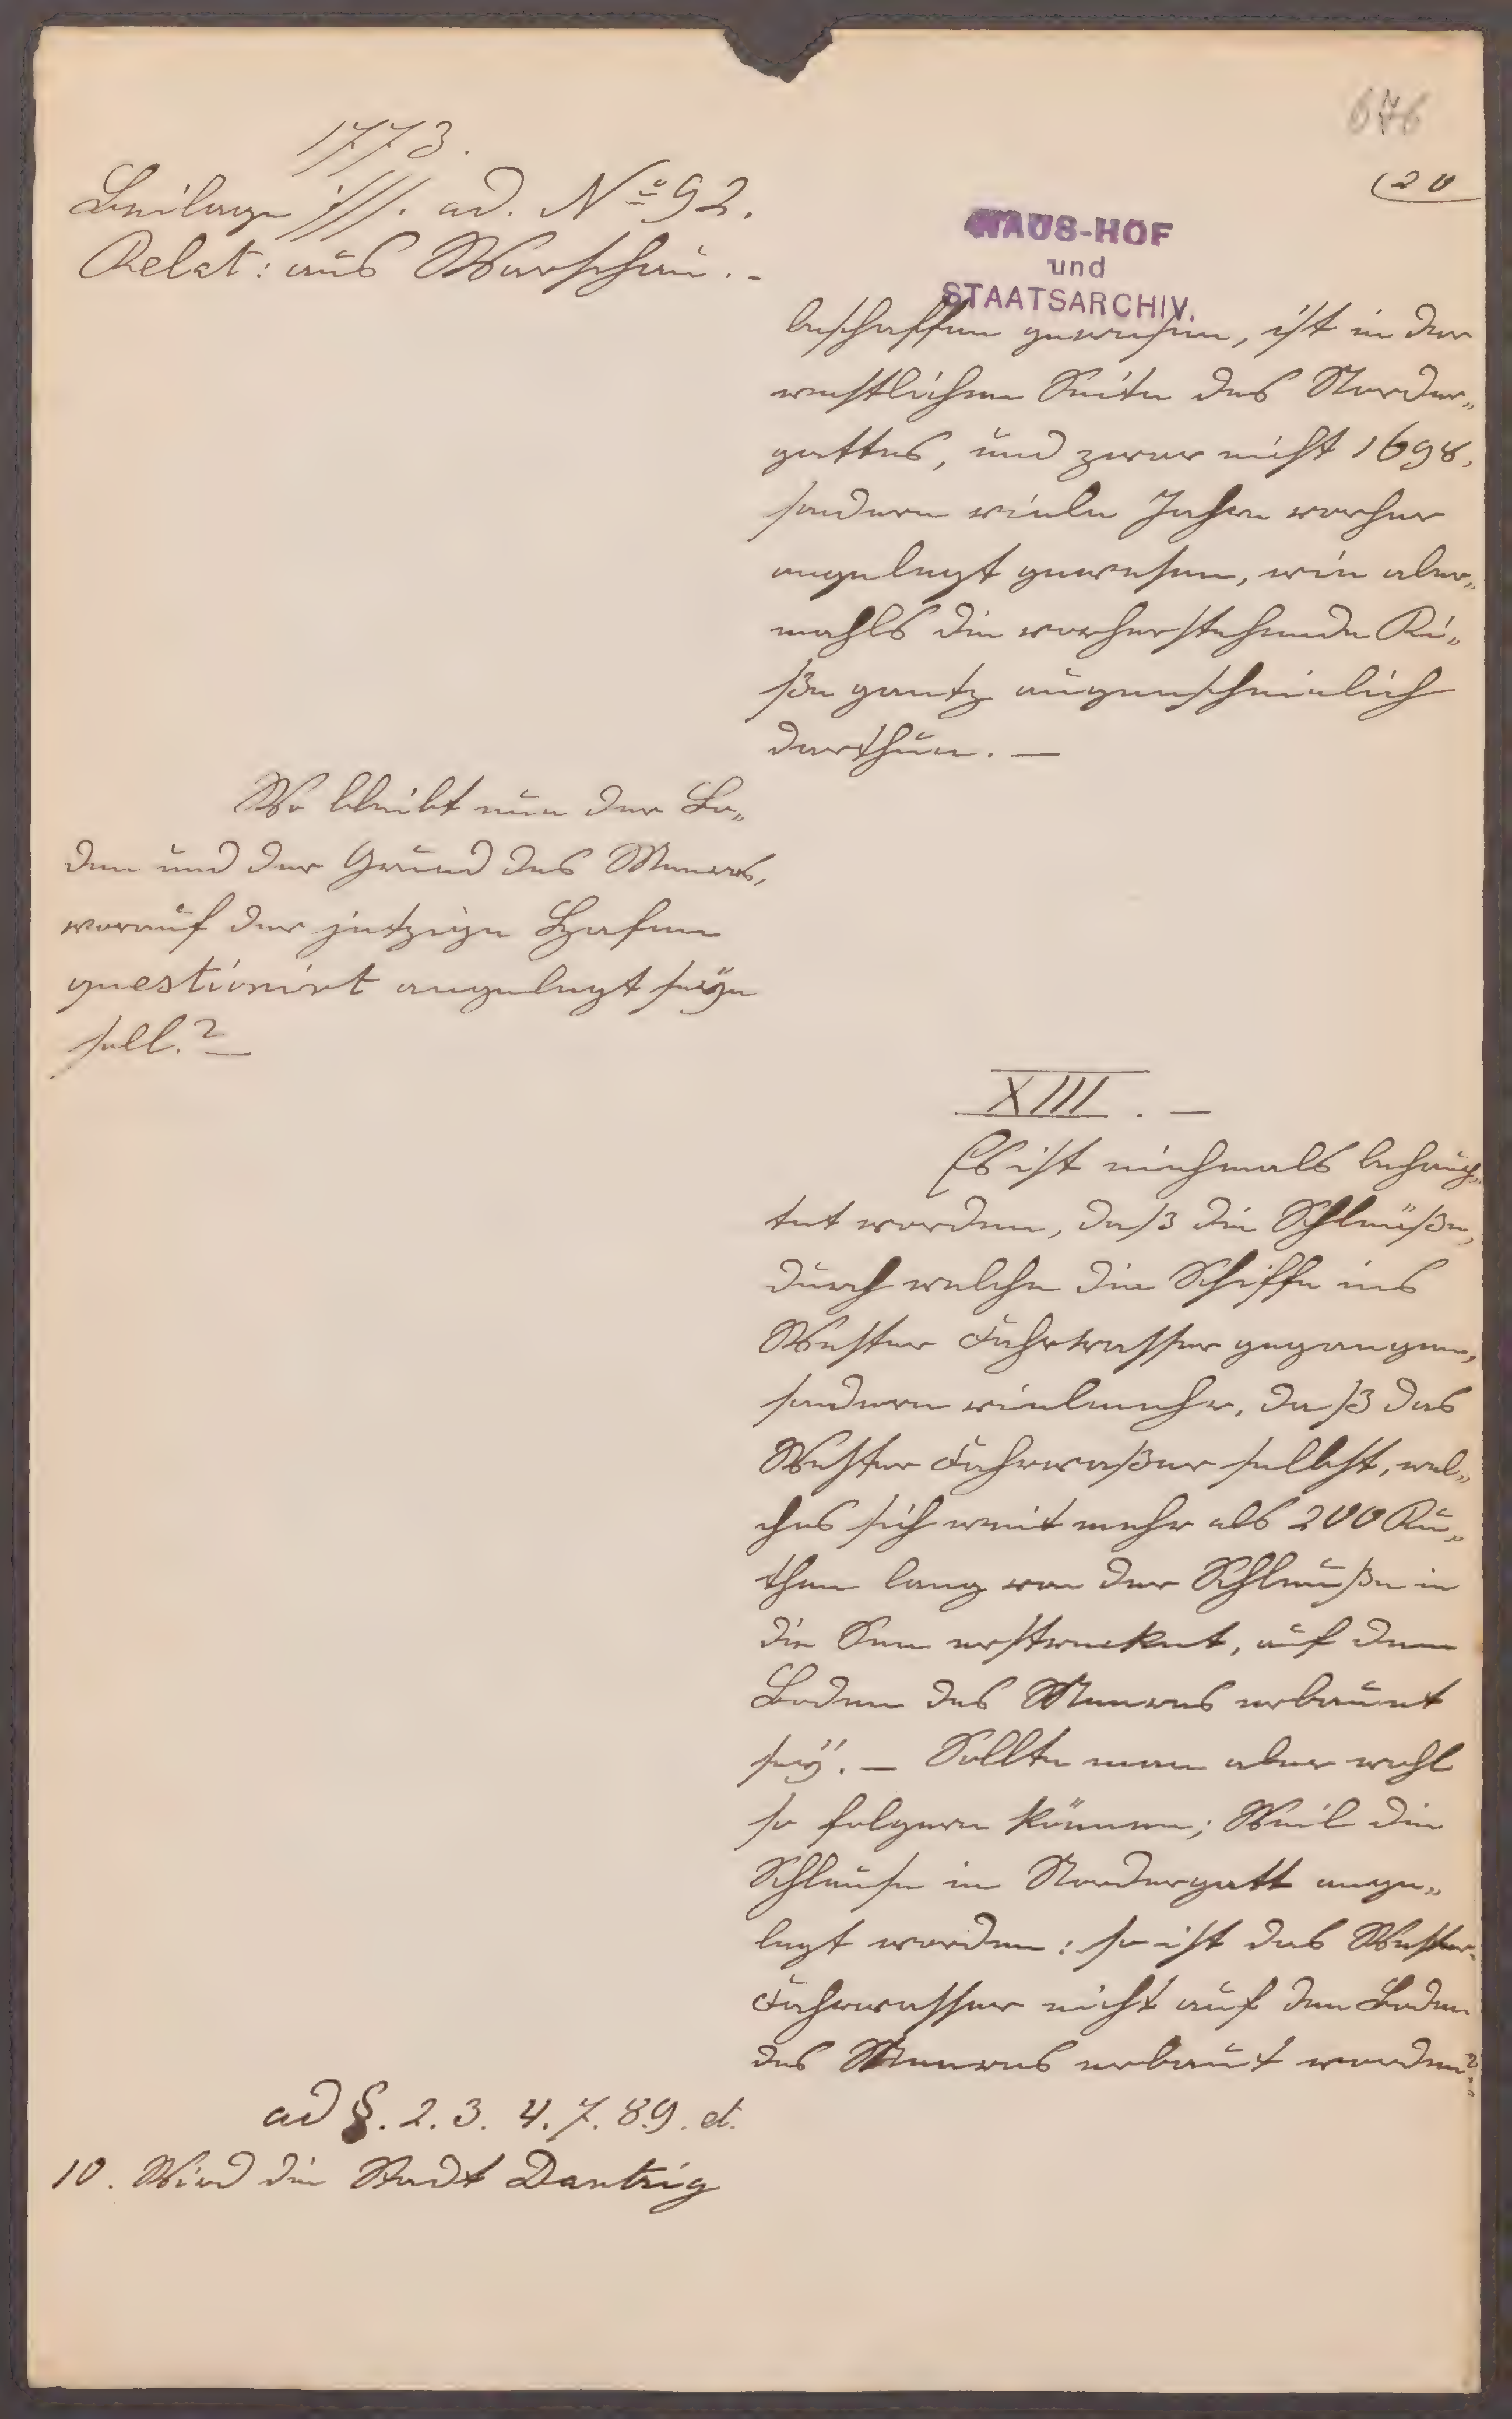 676
(20
1773.
Beilage ///. ad. No 92.
Relat: aus Warschau. -
HAUS-HOF
und
STAATSARCHIV.
beschaffen gewesen, ist in der
westlichen Seite des Norder„
gattes, und zwar nicht 1698,
sondern viele Jahre vorher
angelegt gewesen, wie aber„
mahls die vorherstehende Ri„
ße gantz augenscheinlich
darthun. —
Wo bleibt nun der Bo„
den und der Grund des Meeres,
worauf der jetzige Hafen
questionirt angelegt seÿn
soll.? —
XIII. —
Es ist niehmals behaup„
tet worden, daß die Schleuße,
durch welche die Schiffe ins
Wester Fahrwasser gegangen,
sondern vielmehr, daß das
Wester Fahrwaßer selbst, wel„
ches sich weit mehr als 200 Ru„
then lang von der Schleuße in
die See erstrecket, auf dem
Boden des Meeres erbauet
seÿ. — Sollte man aber wohl
so folgern können; Weil die
Schleuse im Nordergatt ange„
legt worden: so ist das Wester-
Fahrwasser nicht auf den Boden
des Meeres erbaut worden?
ad §. 2. 3. 4. 7. 8.9. et.
10. Wird die Stadt Dantzig